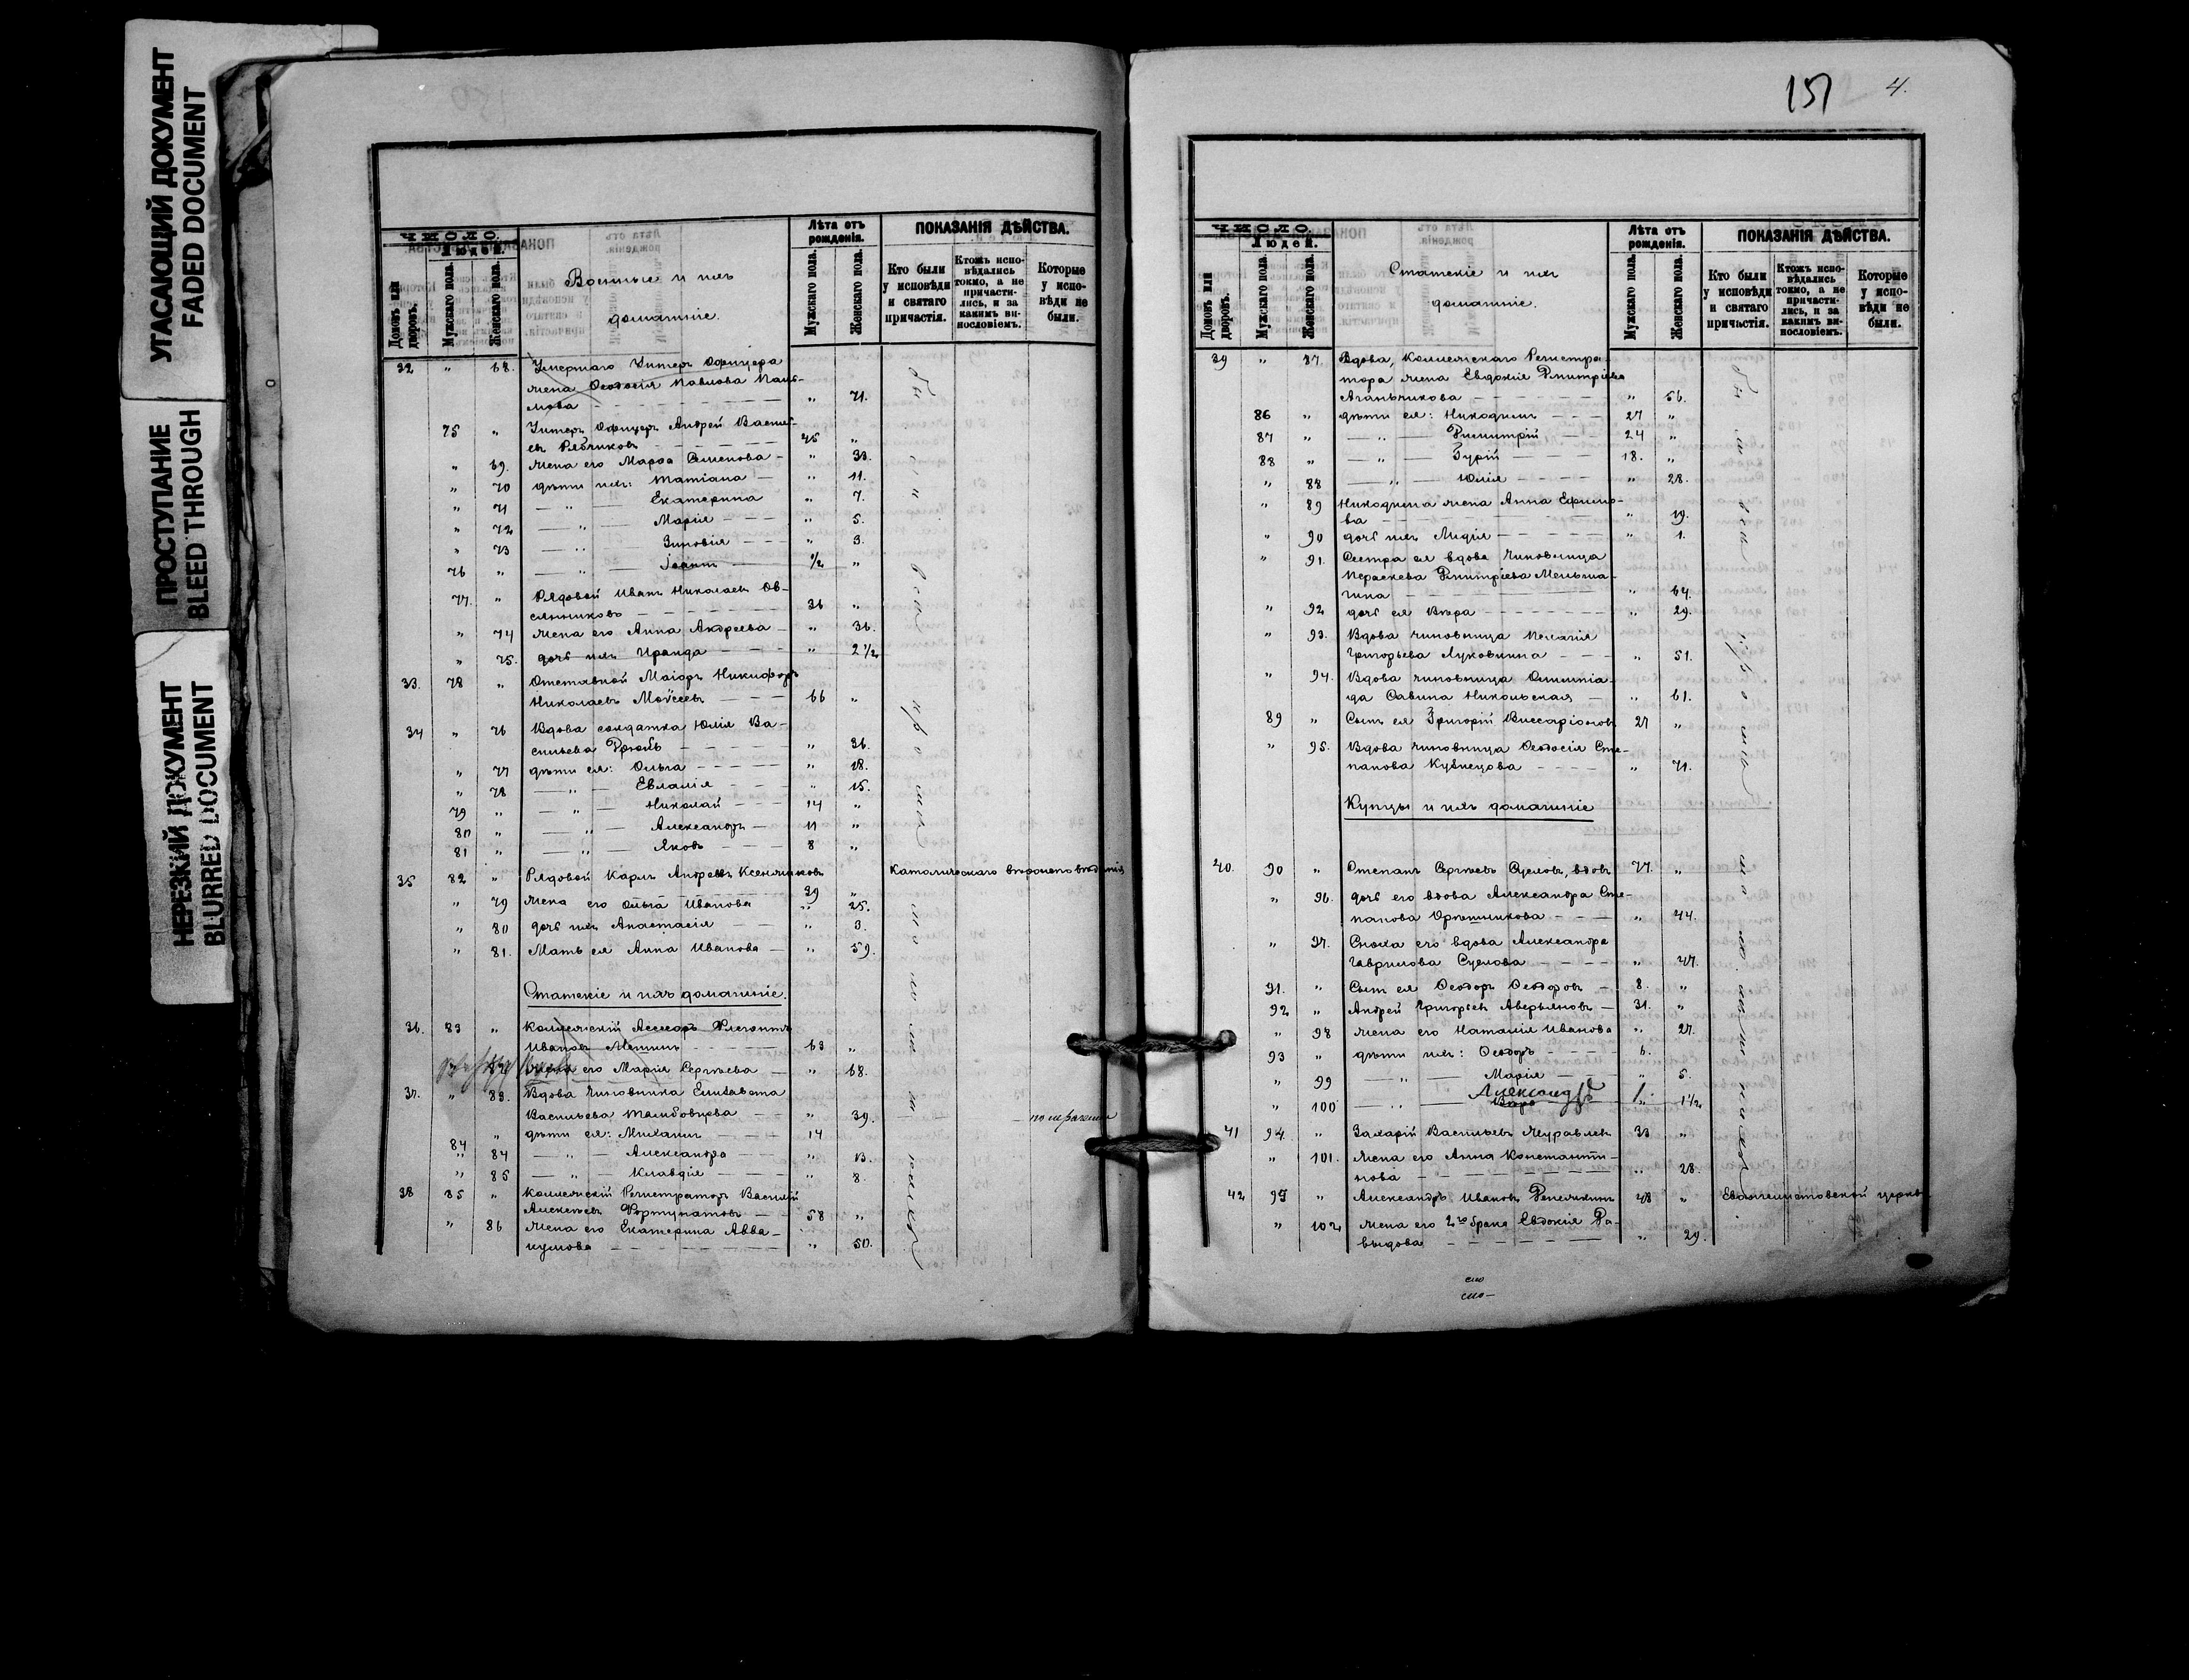 УГАСАЮЩИЙ ДОКУМЕНТ
FADED DOCUMENT
ПРОСТУПАНИЕ
BLEED THROUGH
НЕРЕЗКИЙ ДОКУМЕНТ
BLURRED DOCUMENT
ЧИСЛО.
Людей.
Домовъ или дворовъ.
Мужскаго пола.
Женскаго пола.
Военные и ихъ
домашніе.
Лѣта отъ рожденія.
Мужскаго пола.
Женскаго пола.
ПОКАЗАНІЯ ДѢЙСТВА.
Кто были у исповѣди и святаго причастія.
Ктожъ исповѣдались токмо, а не причастились, и за какимъ винословіемъ.
Которые у исповѣди не были.
32 " 68. Умершаго Унтеръ Офицера
жена Ѳеодосія Павлова
" 71.
75 " Унтеръ Офицеръ Андрей Василь-
евъ Рябчиковъ 45 "
" 69. жена его Марѳа Семенова " 33.
" 70 дѣти ихъ: Татіана " 11.
" 71 — " — Екатерина " 7.
" 72 — " — Марія " 5.
" 73 — " — Зиновія " 3.
76 " — " — Іоаннъ 1/2 "
77. " Рядовой Иванъ Николаевъ Ов-
сянниковъ 36 "
" 74 жена его Анна Андреева " 36.
" 75. дочь ихъ Ираида " 2 1/2
33. 78 " Отставной Маіоръ Никифоръ
Николаевъ Моѵсеевъ 66 "
34 " 76 Вдова солдатка Юлія Ва-
сильева " 36.
" 77 дѣти ея: Ольга " 18.
" 78 — " — Евлалія " 15.
79 " — " — Николай 14 "
80 " — " — Александръ 11 "
81 " — " — Яковъ 8 "
35 82 " Рядовой Карлъ Андреевъ
39 "
Католическаго вѣроисповѣданія
" 79 жена его Ольга Иванова " 25.
" 80 дочь ихъ Анастасія " 3.
" 81. Мать ея Анна Иванова " 59.
Статскіе и ихъ домашніе.
36. 83 " Коллежскій Ассесоръ Флегонтъ
Ивановъ 63 "
жена его Марія Сергѣева " 68.
37. " 83. Вдова чиновника Елизавета
Васильева Тамбовцева " 39.
дѣти ея: Михаилъ 14
84 " 84 — " — Александра " 13.
" 85 — " — Клавдія " 8.
38 85 " Коллежскій Регистраторъ Василій
Алексѣевъ Фортунатовъ 58 "
" 86 жена его Екатерина Авва-
кумова " 50.
были
всѣ
у
151 4.
ЧИСЛО.
Людей.
Домовъ или дворовъ.
Мужскаго пола.
Женскаго пола.
Статскіе и ихъ
домашніе.
Лѣта отъ рожденія.
Мужскаго пола.
Женскаго пола.
ПОКАЗАНІЯ ДѢЙСТВА.
Кто были у исповѣди и святаго причастія.
Ктожъ исповѣдались токмо, а не причастились, и за какимъ винословіемъ.
Которые у исповѣди не были.
39 " 87. Вдова, Коллежскаго Регистра-
тора жена Евдокія Дмитріева
" 56.
86 " дѣти ея: Никодимъ 27 "
87 " — " — Димитрій 24 "
88 " — " — Гурій 18. "
" 88 — " — Юлія " 28.
" 89 Никодима жена Анна Ефимо-
ва " 19.
" 90 дочь ихъ Лидія " 1.
" 91. Сестра ея вдова чиновница
Параскева Дмитріева
" 64.
" 92 дочь ея Вѣра " 29.
" 93. Вдова чиновница Пелагія
Григорьева Луковкина " 51.
" 94. Вдова чиновница Олимпіа-
да Савина Никольская " 61.
89 " Сынъ ея Григорій Виссаріоновъ 27 "
" 95. Вдова чиновница Ѳеодосія Сте-
панова Кузнецова " 71.
Купцы и ихъ домашніе
40. 90 " Степанъ Сергѣевъ Суслов, вдовъ 77. "
" 96. дочь его вдова Александра Сте-
панова Орѣшникова " 44.
" 97. Сноха его вдова Александра
Гаврилова Суслова " 47.
91. " Сынъ ея Ѳеодоръ Ѳеодоровъ 8. "
92 " Андрей Григорьевъ Аверьяновъ 31. "
" 98 жена его Наталія Иванова " 27.
93 " дѣти ихъ: Ѳеодоръ 6.
" 99 — " — Марія " 5.
Александръ 1.
" 100 — " — Вѣра " 1 1/2
41 94. " Захарій Васильевъ Журавлевъ 33 "
" 101. жена его Анна Константи-
нова " 28.
42 95 " Александръ Ивановъ 48 "
Евангелистовской церкви.
" 102 жена его 2го брака Евдокія Да-
выдова " 29.